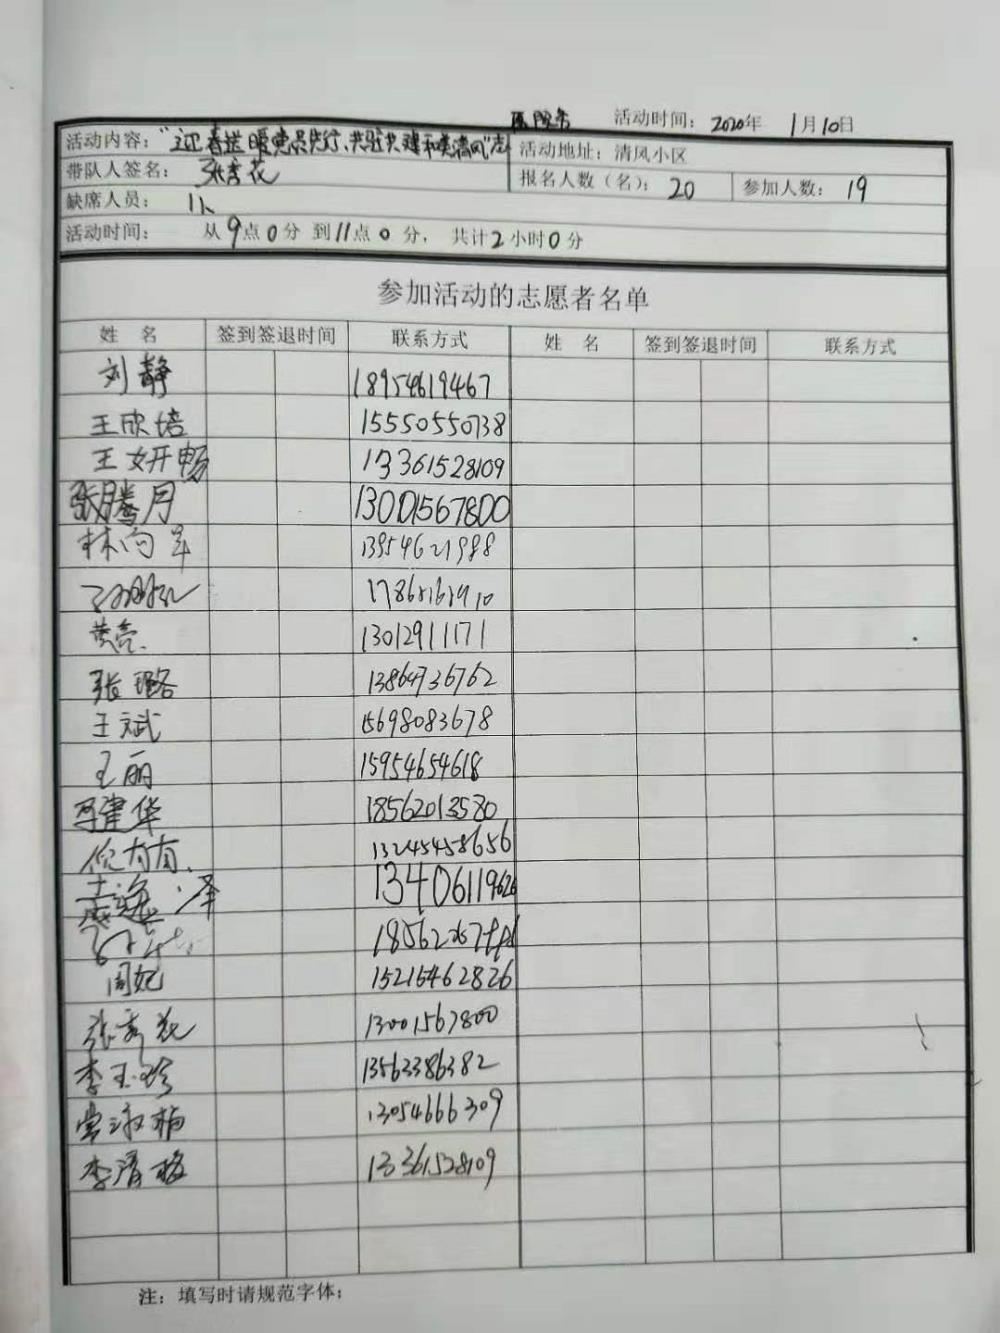 活动时间：2020年 1月10日
活动内容："迎春送暖党员先行、共驻共建和美清风"志 活动地址：清风小区
带队人签名：张秀花 报名人数（名）：20 参加人数：19
缺席人员：1人
活动时间： 从9点0分 到11点0分， 共计2小时0分
参加活动的志愿者名单
姓 名 签到签退时间 联系方式 姓 名 签到签退时间 联系方式
刘静 18954619467
王欣培 15550550738
王妍畅 13361528109
张腾月 13001567800
林向 13954621988
黄亮 13012911171
张璐 13864736762
王斌 15698083678
王丽 15954654618
建华 18562013580
倪有有 13245458656
逸泽 13406119626
周妃 15215462826
张秀花 13001567800
李玉珍 13563386382
常淑梅 13054666309
李清梅 13361528109
注：填写时请规范字体；